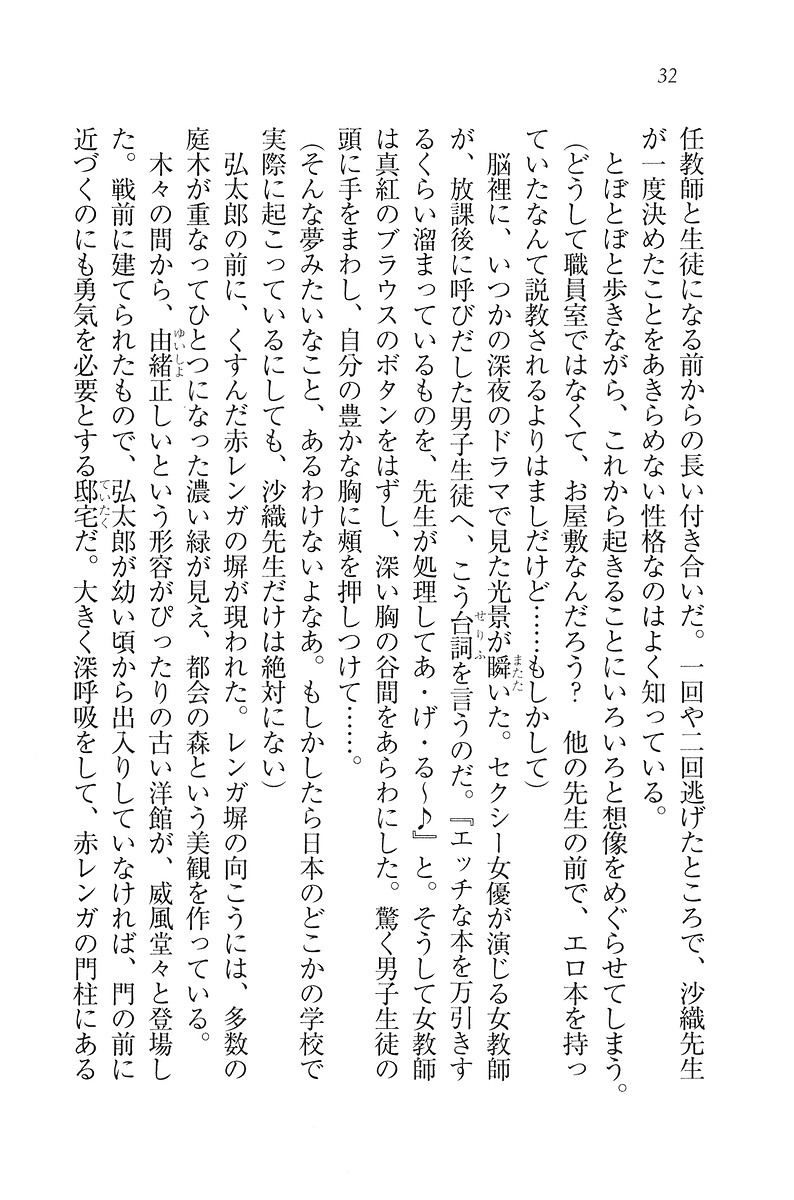 32
任教師と生徒になる前からの長い付き合いだ。一回や二回逃げたところで、沙織先生
が一度決めたことをあきらめない性格なのはよく知っている。
　とぼとぼと歩きながら、これから起きることにいろいろと想像をめぐらせてしまう。
（どうして職員室ではなくて、お屋敷なんだろう？　他の先生の前で、エロ本を持っ
ていたなんて説教されるよりはましだけど……もしかして）
　脳裡に、いつかの深夜のドラマで見た光景が瞬いた。セクシー女優が演じる女教師
が、放課後に呼びだした男子生徒へ、こう台詞を言うのだ。『エッチな本を万引きす
るくらい溜まっているものを、先生が処理してあ・げ・る～♪』と。そうして女教師
は真紅のブラウスのボタンをはずし、深い胸の谷間をあらわにした。驚く男子生徒の
頭に手をまわし、自分の豊かな胸に頬を押しつけて……。
（そんな夢みたいなこと、あるわけないよなあ。もしかしたら日本のどこかの学校で
実際に起こっているにしても、沙織先生だけは絶対にない）
　弘太郎の前に、くすんだ赤レンガの塀が現われた。レンガ塀の向こうには、多数の
庭木が重なってひとつになった濃い緑が見え、都会の森という美観を作っている。
　木々の間から、由緒正しいという形容がぴったりの古い洋館が、威風堂々と登場し
た。戦前に建てられたもので、弘太郎が幼い頃から出入りしていなければ、門の前に
近づくのにも勇気を必要とする邸宅だ。大きく深呼吸をして、赤レンガの門柱にある
またた
せりふ
ゆいしよ
ていたく